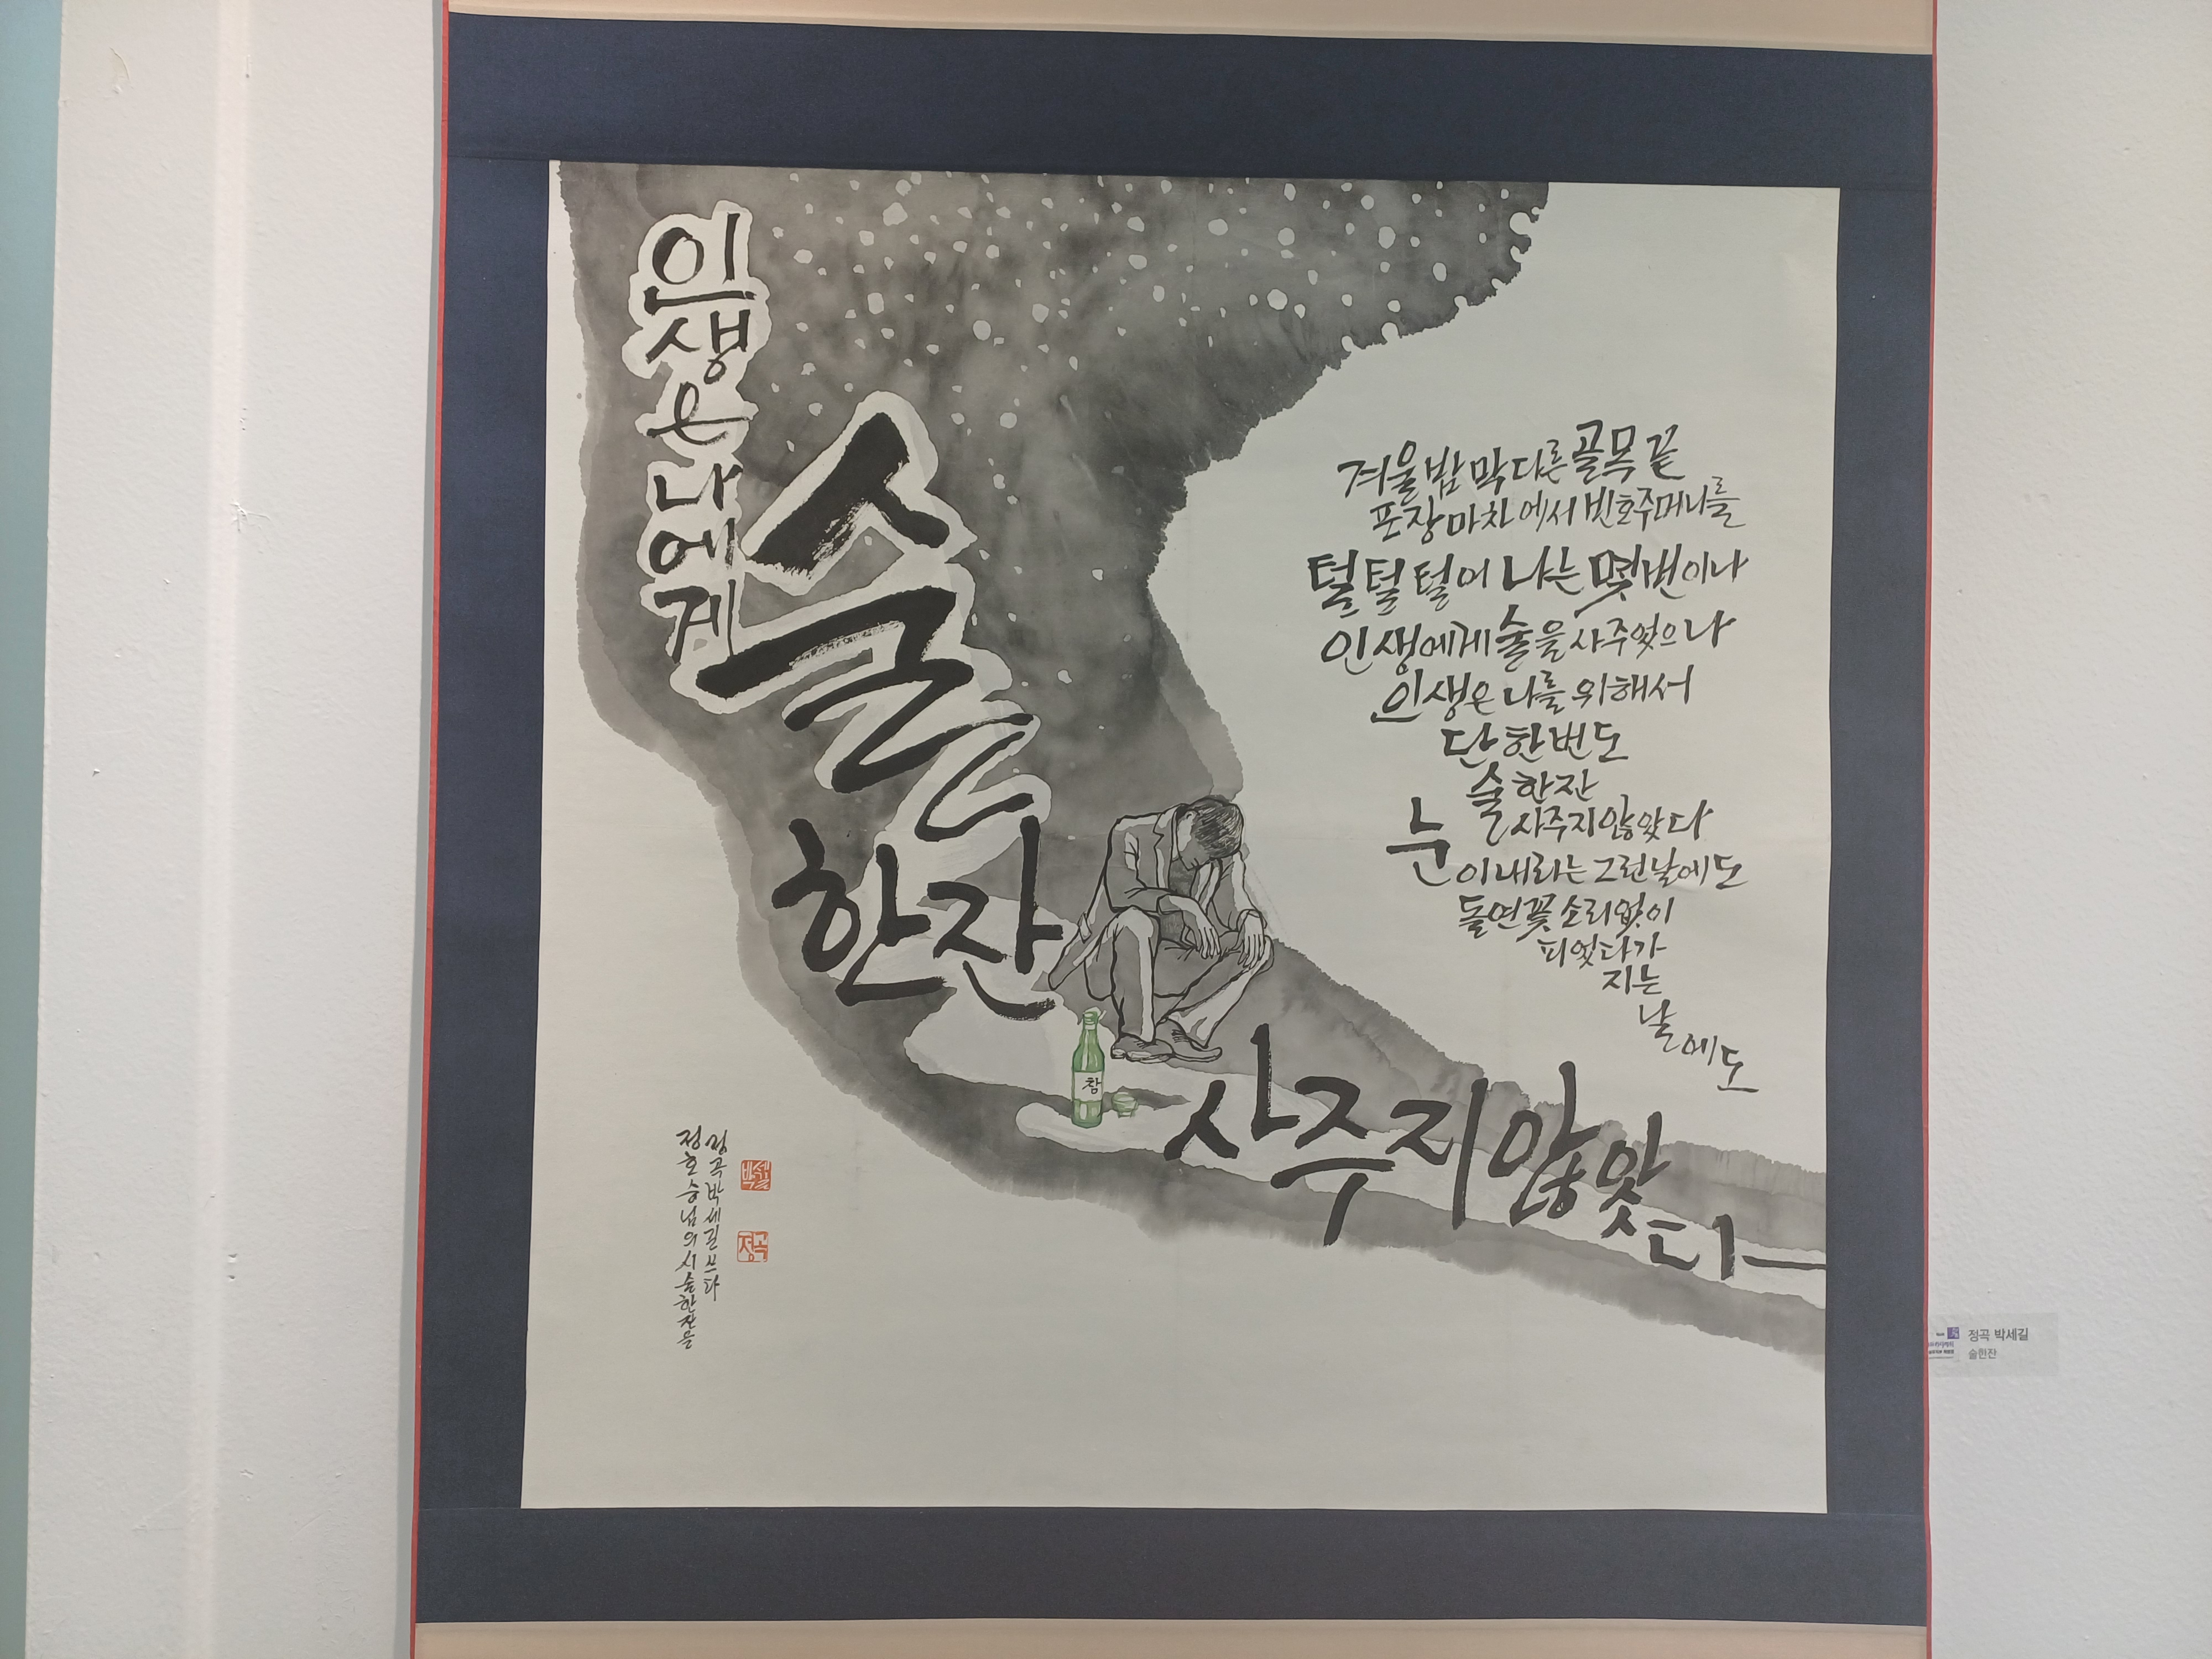 인생은 나에게
술
한잔
사주지 않았다
겨울밤 막다른 골목 끝
포장마차에서 빈 호주머니를
털털 털어 나는 몇번이나
인생에게 술을 사주었으나
인생은 나를 위해서
단 한번도
술 한잔
사주지 않았다
눈이 내리는 그런 날에도
돌연꽃 소리없이
피었다가
지는
날
에도
참
정호승님의 시 술한잔을
정곡 박세길 쓰다
정곡
정곡 박세길
술한잔